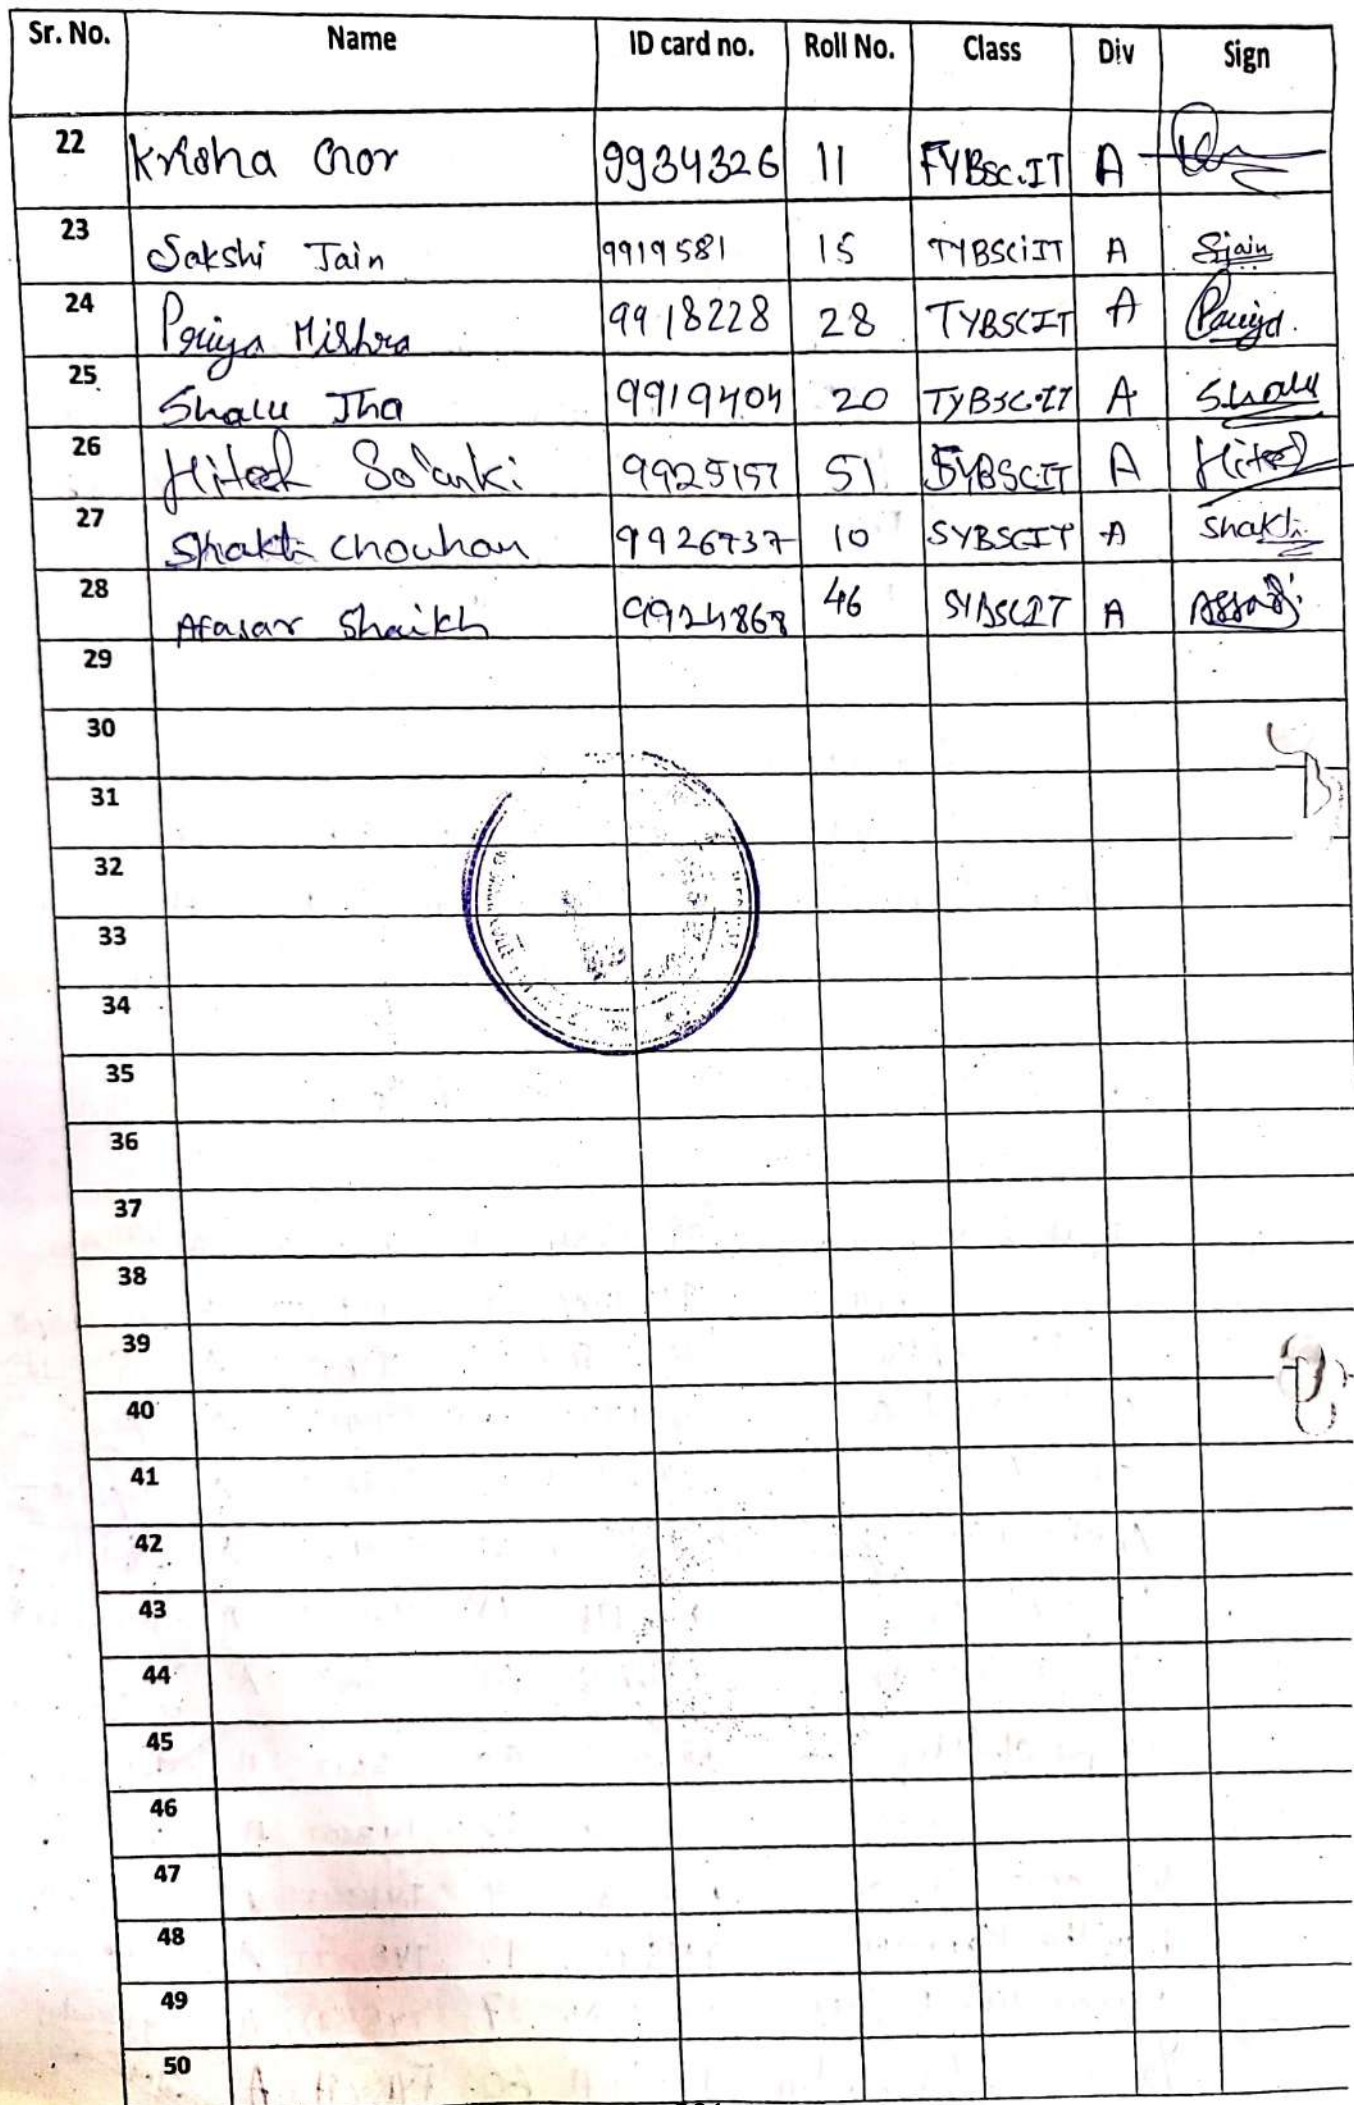 Sr. No. Name ID card no. Roll No. Class Div Sign
22 Krisha Gor 9934326 11 FYBSc.IT A
23 Sakshi Jain 9919581 15 TYBSCIT A Sjain
24 Priya Mishra 9918228 28 TYBSCIT A Priya
25 Shalu Jha 9919404 20 TYBSC.IT A Shalu
26 Hitesh Solanki 9925157 51 SYBSCIT A Hitesh
27 Shakti Chouhan 9926737 10 SYBSCIT A Shakti
28 Afasar Shaikh 9924868 46 SYBSCIT A
29
30
31
32
33
34
35
36
37
38
39
40
41
42
43
44
45
46
47
48
49
50